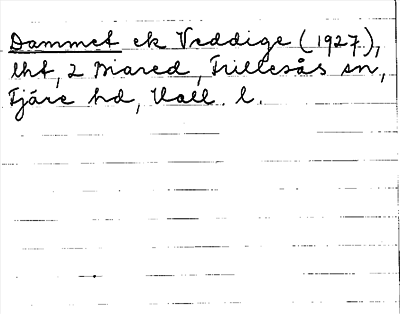 Dammet ek Veddige (1927),
lht, 2 Mared, Frillesås sn,
Fjäre hd, Hall. l.